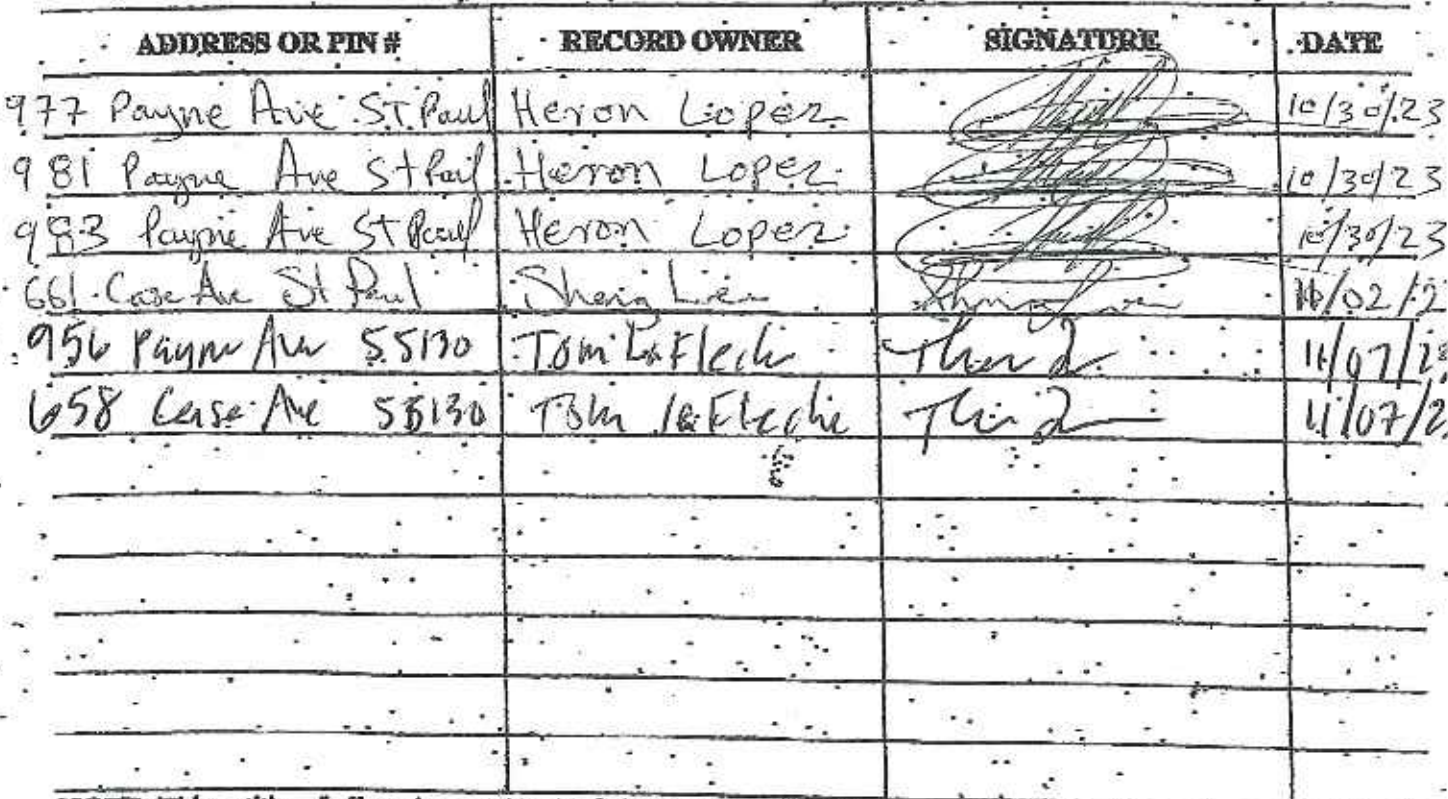 ADDRESS OR PIN # RECORD OWNER SIGNATURE DATE
977 Payne Ave St Paul Heron Lopez 10/30/23
981 Payne Ave St Paul Heron Lopez 10/30/23
983 Payne Ave St Paul Heron Lopez 10/30/23
661 Case Ave St Paul Sheng /02/2
956 Payne Ave 55130 Tom LaFleche 11/07/2
658 Case Ave 55130 Tom LaFleche 11/07/2